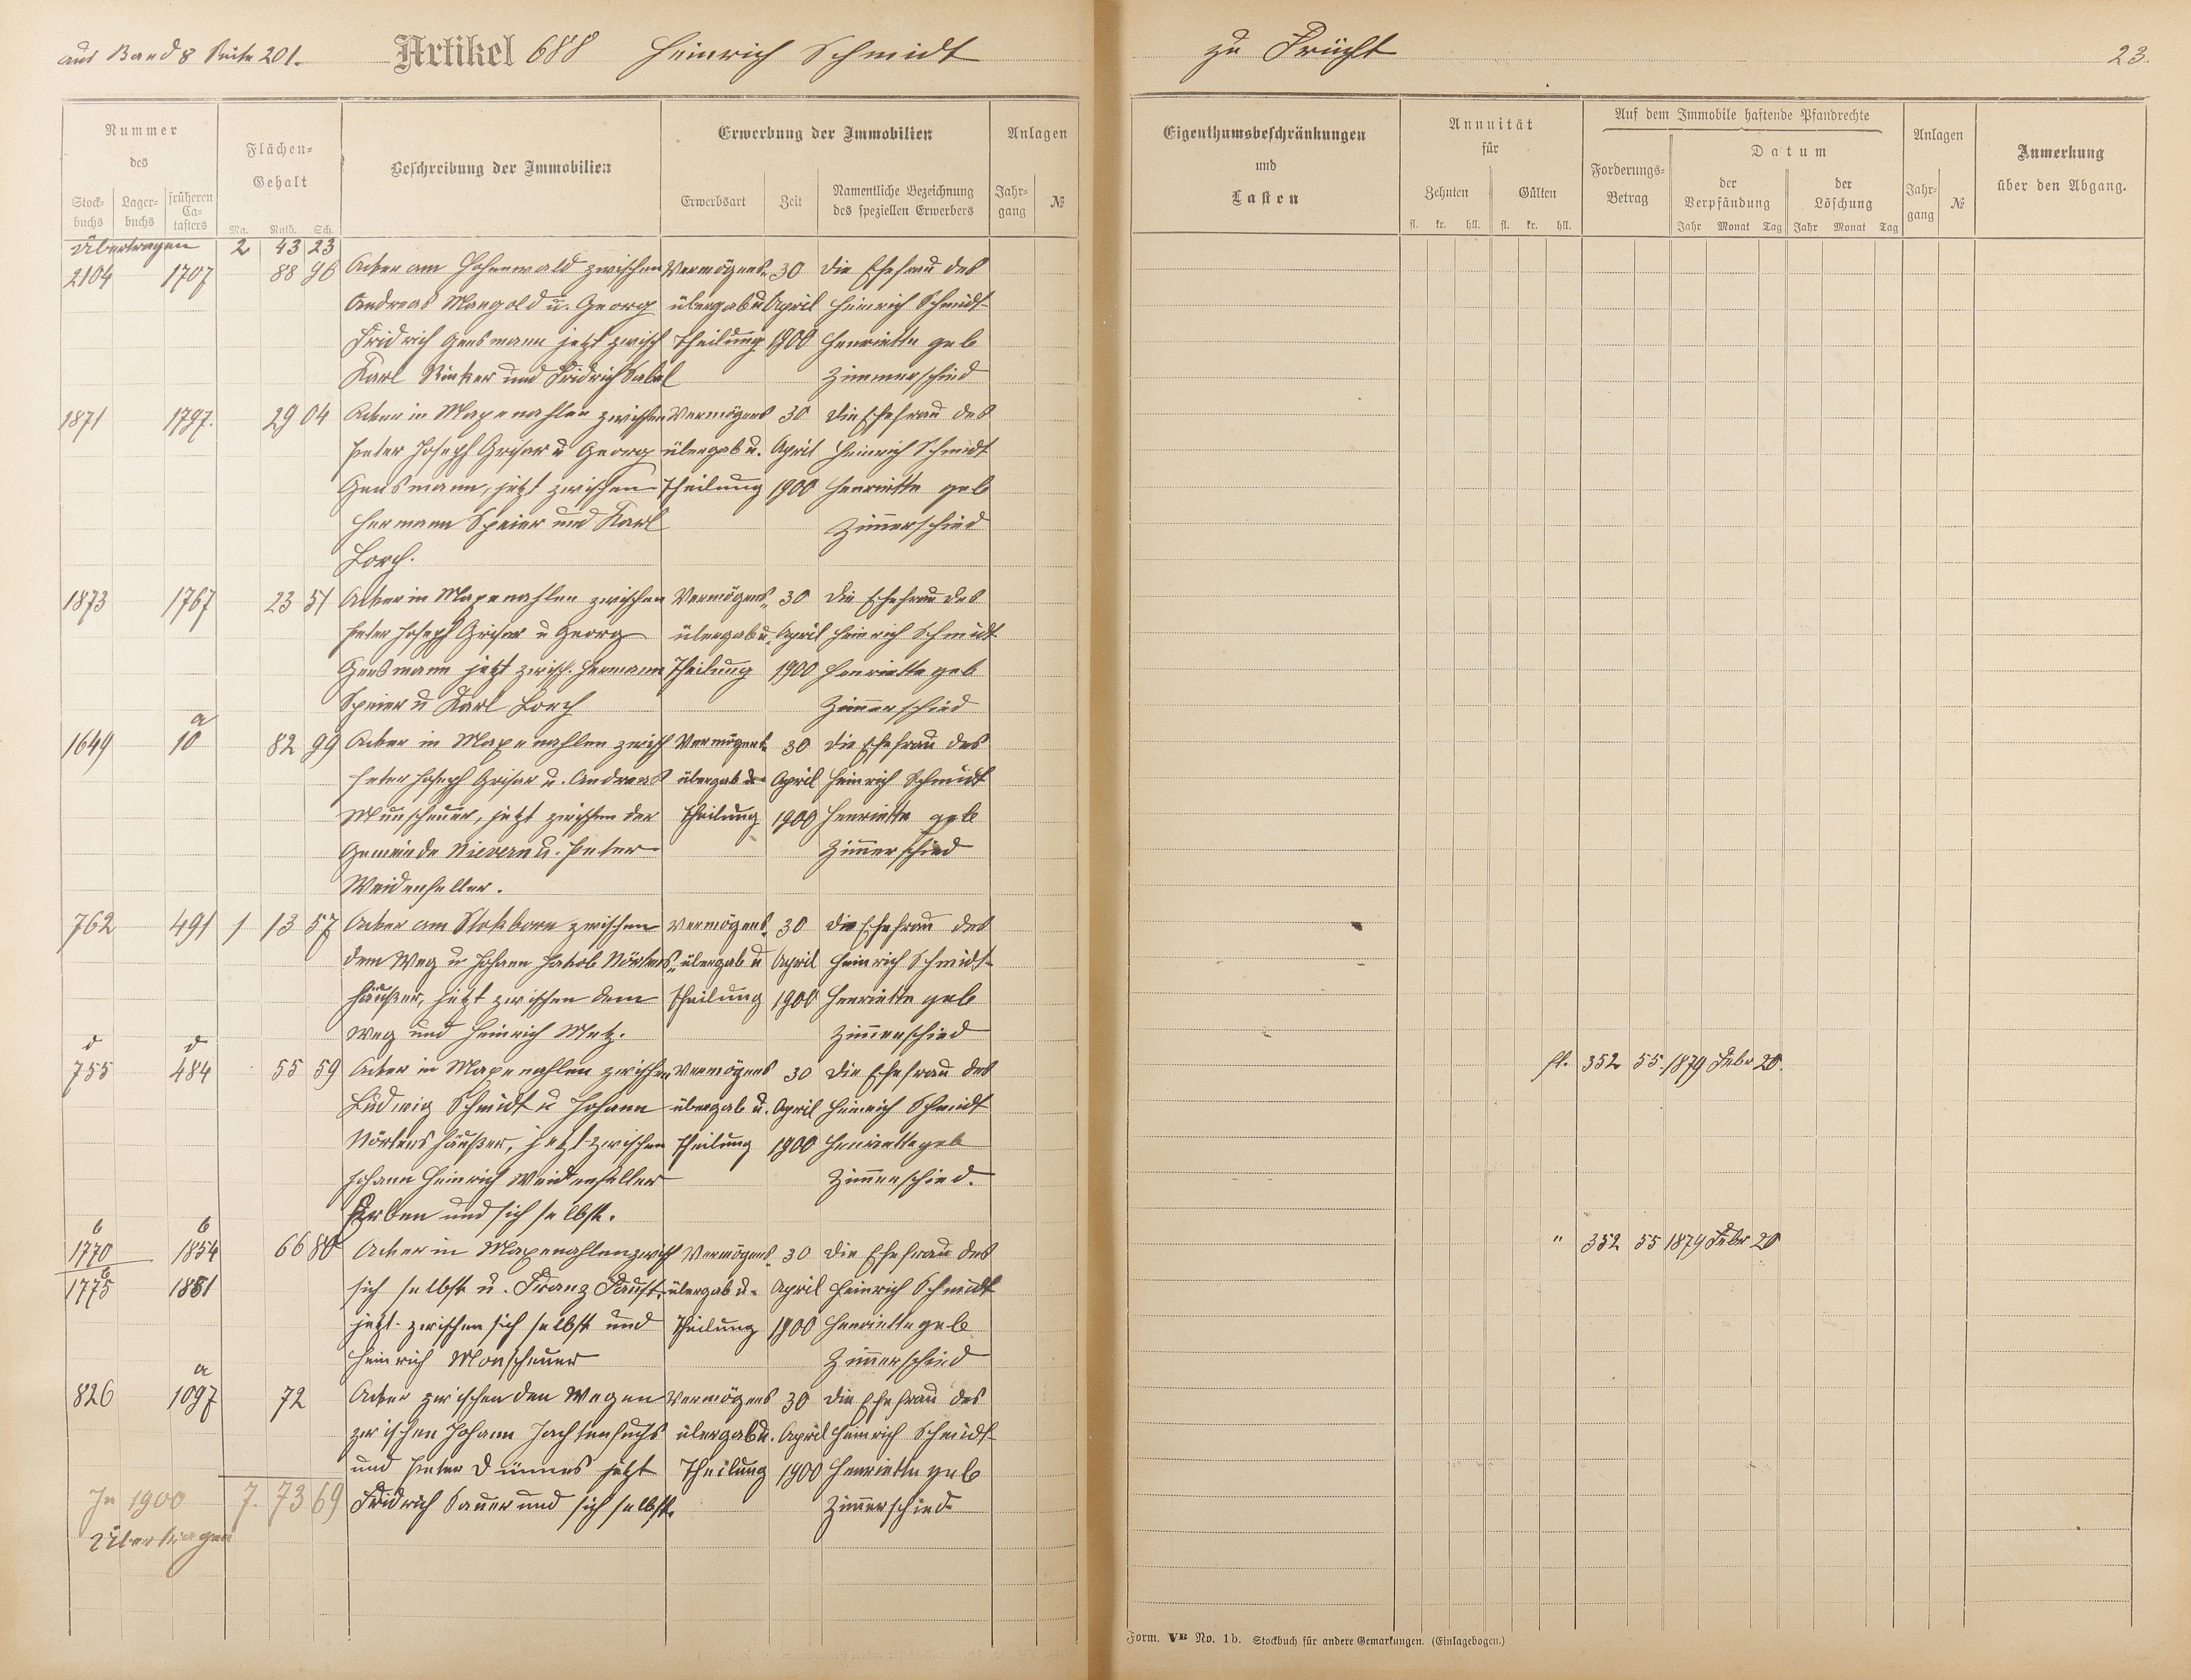 aus Band 8 Seite 201. Artikel 688 Heinrich Schmidt zu Frücht 23.
Nummer des
Stockbuchs Lagerbuchs früheren Catasters
Flächen-Gehalt
Ma. Ruth. Sch.
Beschreibung der Immobilien
Erwerbung der Immobilien
Erwerbsart Zeit Namentliche Bezeichnung des speziellen Erwerbers
Anlagen
Jahrgang №
Eigenthumsbeschränkungen
und
Lasten
Annuität
für
Zehnten Gülten
fl. kr. hll. fl. kr. hll.
Auf dem Immobile haftende Pfandrechte
Forderungs-Betrag
Datum
der Verpfändung der Löschung
Jahr Monat Tag Jahr Monat Tag
Anlagen
Jahrgang №
Anmerkung
über den Abgang.
Übertragen 2 43 23
2104 1707 88 96 Acker am Hohenwald zwischen Vermögens- 30 die Ehefrau des
Andreas Mangold u. Georg übergab u April Heinrich Schmidt
Fridrich Gensmann jetzt zwisch Theilung 1900 Henriette geb
Karl Rinker und Fridrich Zimmerschied
1871 1797. 29 04 Acker in Maxenahlen zwischen Vermögens 30 die Ehefrau des
Peter Joseph Grisar u Georg übergab u. April Heinrich Schmidt
Gensmann, jetzt zwischen Theilung 1900 Henriette geb
Hermann Speier und Karl Zimerschied
Lorch.
1873 1767 23 51 Acker in Maxenahlen zwischen Vermögens- 30 die Ehefrau des
Peter Joseph Grisar u Georg übergab u. April Heinrich Schmidt
Gensmann jetzt zwisch. Hermann Theilung 1900 Henriette geb
Speier u Karl Lorch Zimerschied
1649 10 a 82 99 Acker in Maxenahlen zwisch Vermögens- 30 die Ehefrau des
Peter Joseph Grisar u. Andreas übergab u April Heinrich Schmidt
Munscheuer, jetzt zwischen der Theilung 1900 Henriette geb
Gemeinde Nievern u. Peter Zimerschied
Weidenfeller.
762 491 1 13 57 Acker am Stockborn zwischen Vermögens- 30 die Ehefrau des
dem Weg u Johann Jakob Nörters- übergab u April Heinrich Schmidt
häußer, jetzt zwischen dem Theilung 1900 Henriette geb
Weg und Heinrich Metz. Zimerschied
755 d 484 d 55 59 Acker in Maxenahlen zwischen Vermögens 30 die Ehefrau des fl. 352 55. 1879 Febr 20.
Ludwig Schmidt u Johann übergab u. April Heinrich Schmidt
Nörtershäußer, jetzt zwischen Theilung 1900 Henriette geb
Johann Heinrich Weidenfeller Zimerschied.
Erben und sich selbst.
1770 b 1854 b 66 80 Acker in Maxenahlen zwisch Vermögens- 30 die Ehefrau des " 352 55 1879 Febr 20
1775 b 1851 sich selbst u. Franz Faust, übergab u- April Heinrich Schmidt
jetzt zwischen sich selbst und Theilung 1900 Henriette geb
Heinrich Monscheuer Zimerschied
826 1097 a 72 Acker zwischen den Wegen Vermögens 30 die Ehefrau des
zwischen Johann Jachtenfuchs übergab u. April Heinrich Schmidt
und Peter Dünnes jetzt Theilung 1900 Henriette geb
In 1900 7. 73 69 Fridrich Sauer und sich selbst. Zimerschied
Übertragen
Form. VB No. 1b. Stockbuch für andere Gemarkungen. (Einlagebogen.)